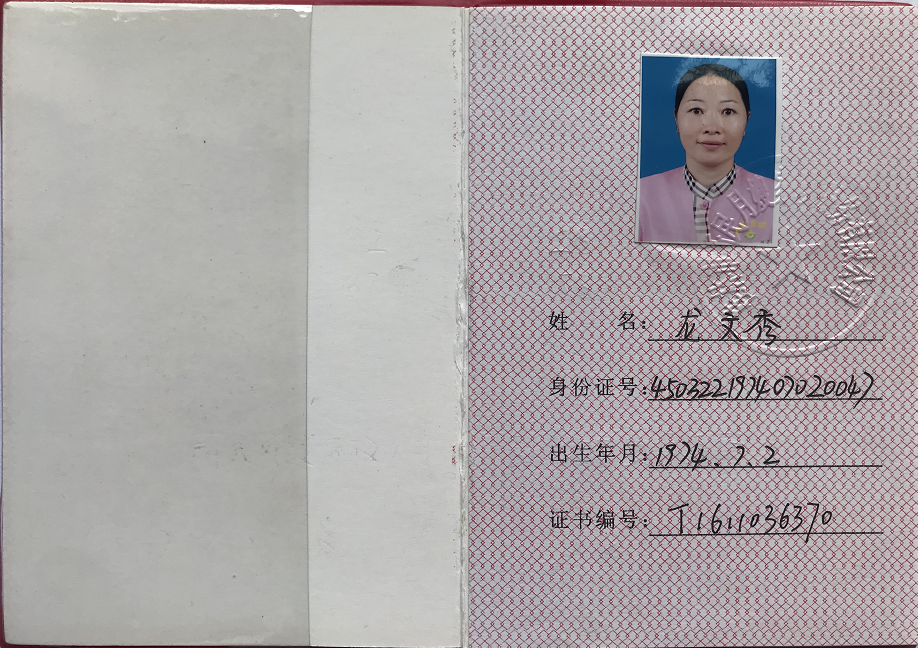 姓 名: 龙文秀
身份证号: 450322197407020047
出生年月: 1974.7.2
证书编号: T1611036370